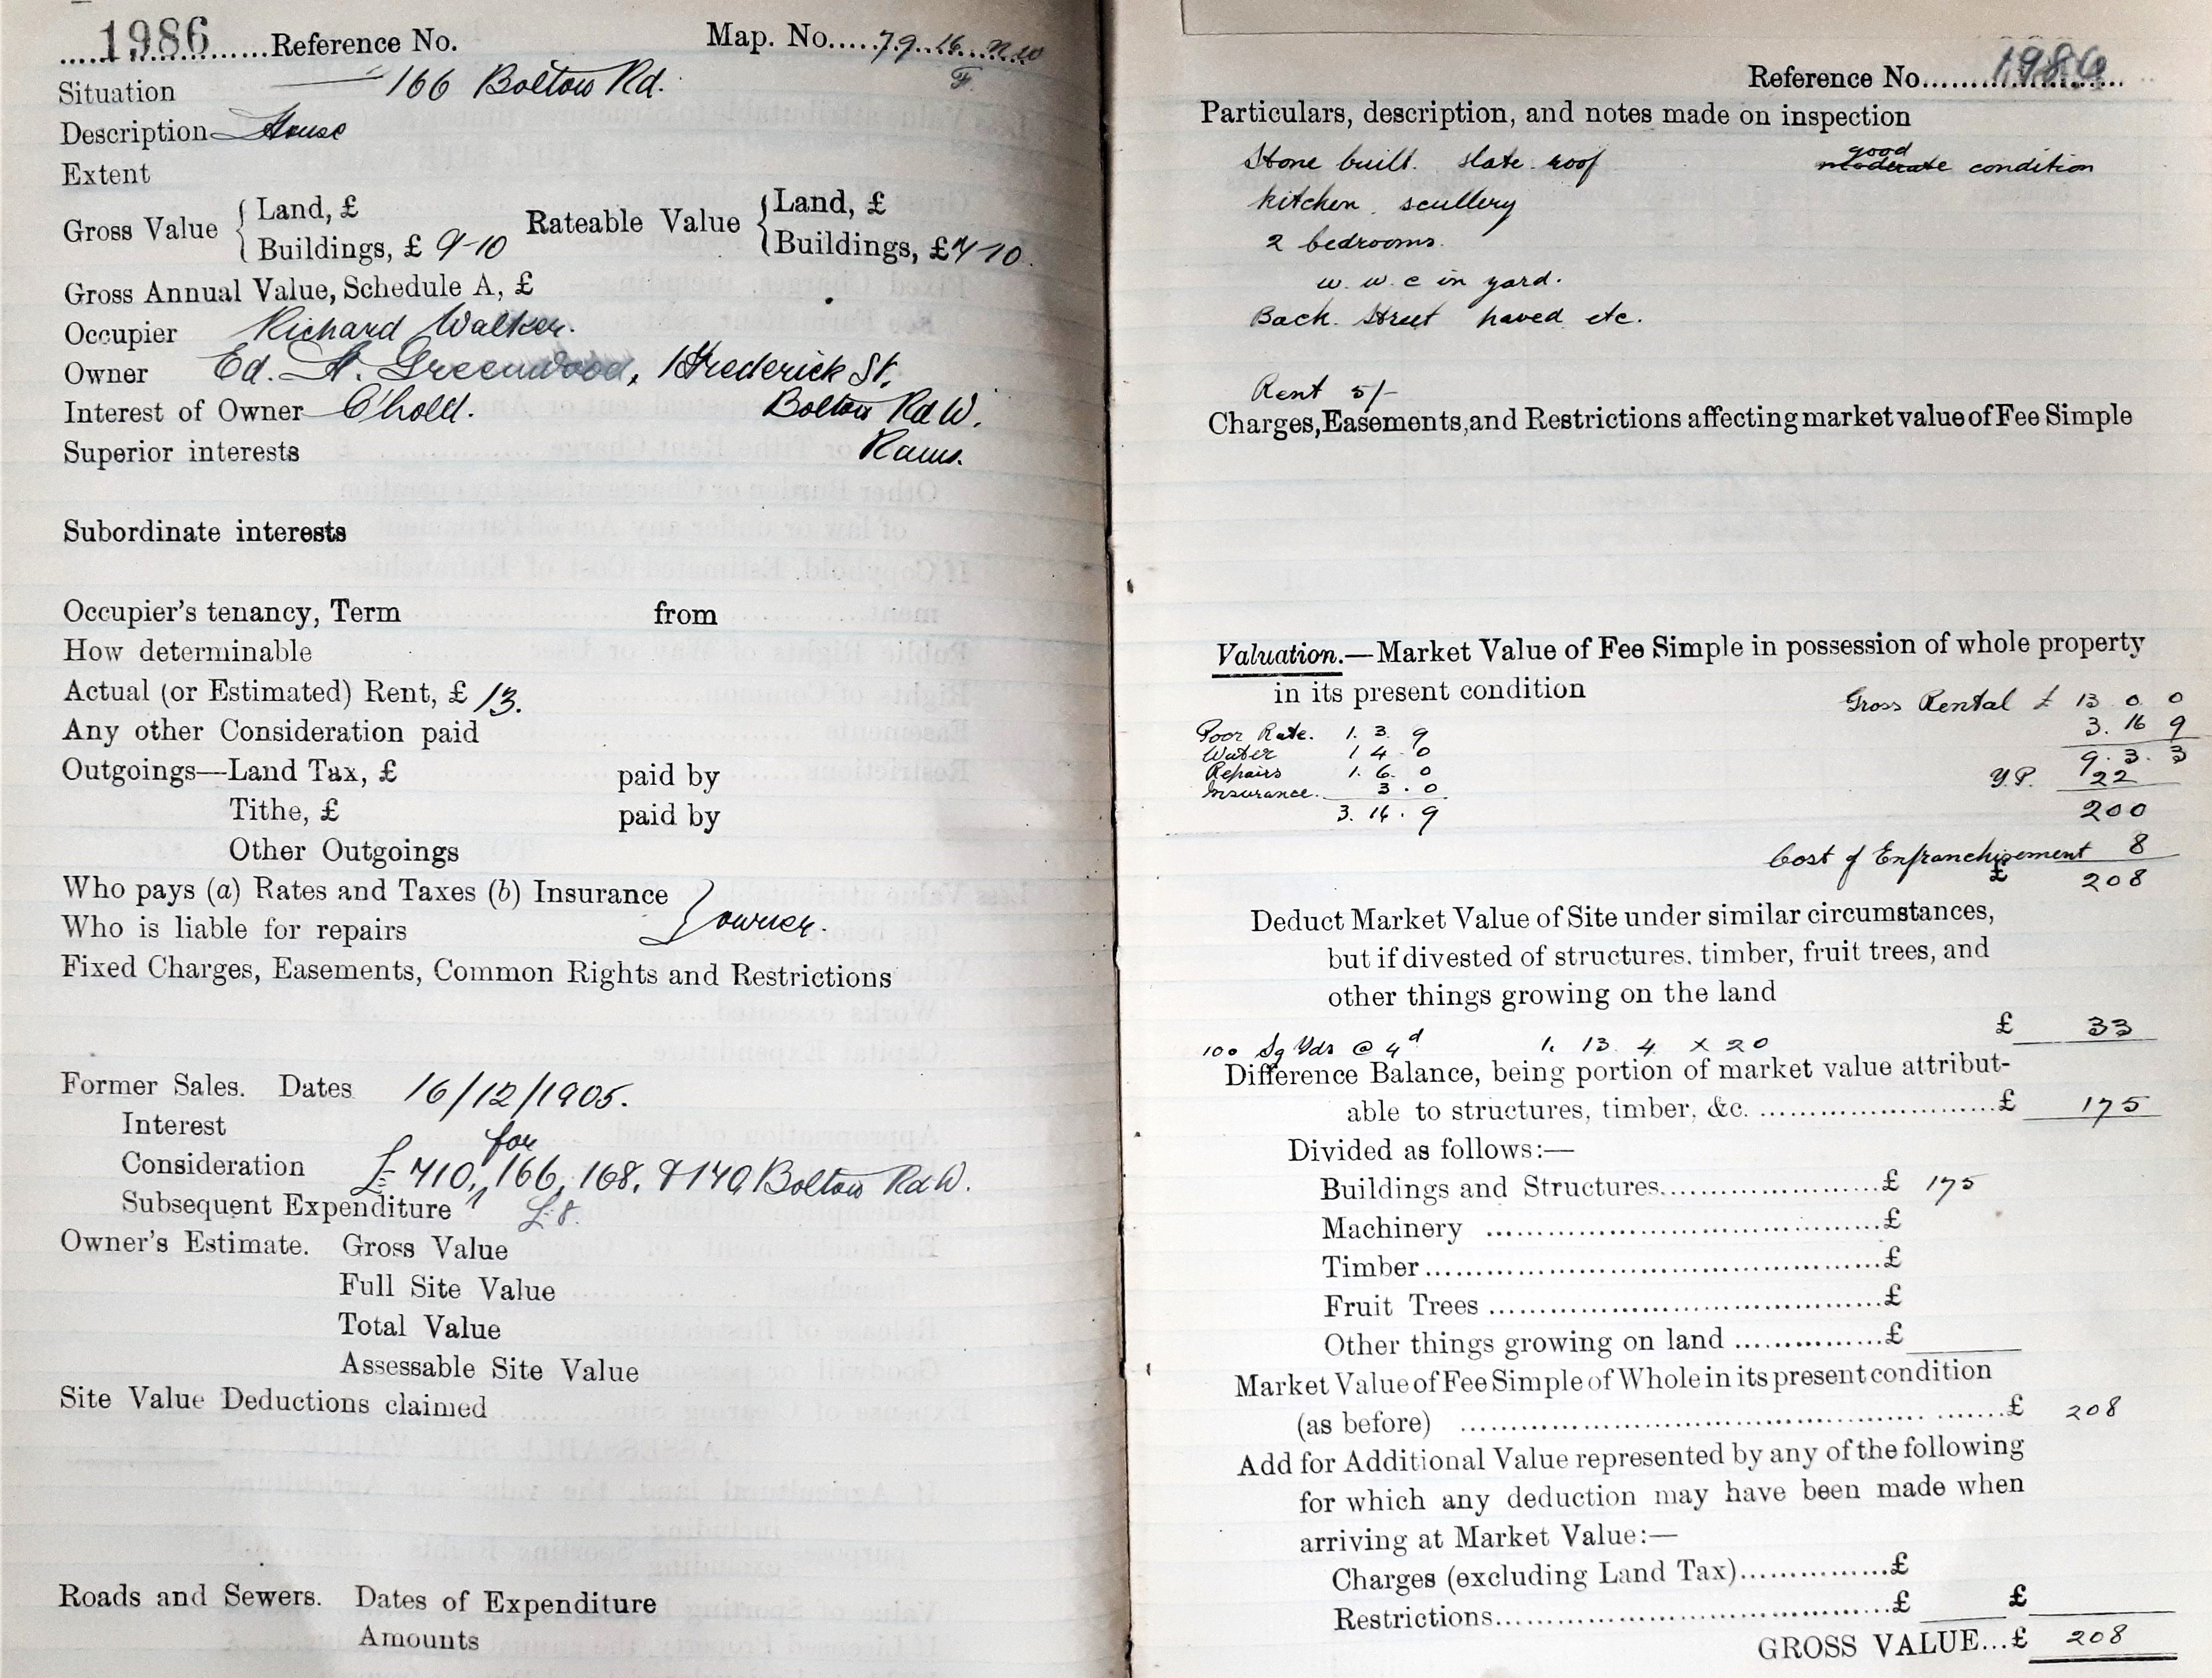 1986 Reference No. Map. No. 79.16. N.W
F.
Situation 166 Bolton Rd.
Description House
Extent
Gross Value { Land, £
Buildings, £ 9-10
Rateable Value { Land, £
Buildings, £ 7-10.
Gross Annual Value, Schedule A, £
Occupier Richard Walker.
Owner Ed. H. Greenwood, 1 Frederick St,
Interest of Owner C'hold. Bolton Rd W.
Superior interests Rams.
Subordinate interests
Occupier's tenancy, Term from
How determinable
Actual (or Estimated) Rent, £ 13.
Any other Consideration paid
Outgoings—Land Tax, £ paid by
Tithe, £ paid by
Other Outgoings
Who pays (a) Rates and Taxes (b) Insurance
Who is liable for repairs } owner.
Fixed Charges, Easements, Common Rights and Restrictions
Former Sales. Dates 16/12/1905.
Interest
for
Consideration £710, 166, 168, & 170 Bolton Rd W.
Subsequent Expenditure £8.
Owner's Estimate. Gross Value
Full Site Value
Total Value
Assessable Site Value
Site Value Deductions claimed
Roads and Sewers. Dates of Expenditure
Amounts
Reference No. 1986
Particulars, description, and notes made on inspection
good
Stone built. slate roof moderate condition
kitchen. scullery
2 bedrooms.
w. w. c in yard.
Back. Street paved etc.
Rent 5/-
Charges, Easements, and Restrictions affecting market value of Fee Simple
Valuation.—Market Value of Fee Simple in possession of whole property
in its present condition
Gross Rental £ 13 0 0
3. 16 9
9. 3. 3
Y.P. 22
200
Cost of Enfranchisement 8
£ 208
Poor Rate. 1. 3. 9
Water 1 4. 0
Repairs 1. 6. 0
Insurance. 3. 0
3. 16. 9
Deduct Market Value of Site under similar circumstances,
but if divested of structures, timber, fruit trees, and
other things growing on the land
£ 33
100 Sq Yds @ 4d 1. 13. 4 x 20
Difference Balance, being portion of market value attribut-
able to structures, timber, &c. £ 175
Divided as follows:—
Buildings and Structures £ 175
Machinery £
Timber £
Fruit Trees £
Other things growing on land £
Market Value of Fee Simple of Whole in its present condition
(as before) £ 208
Add for Additional Value represented by any of the following
for which any deduction may have been made when
arriving at Market Value:—
Charges (excluding Land Tax) £
Restrictions £ £
GROSS VALUE...£ 208